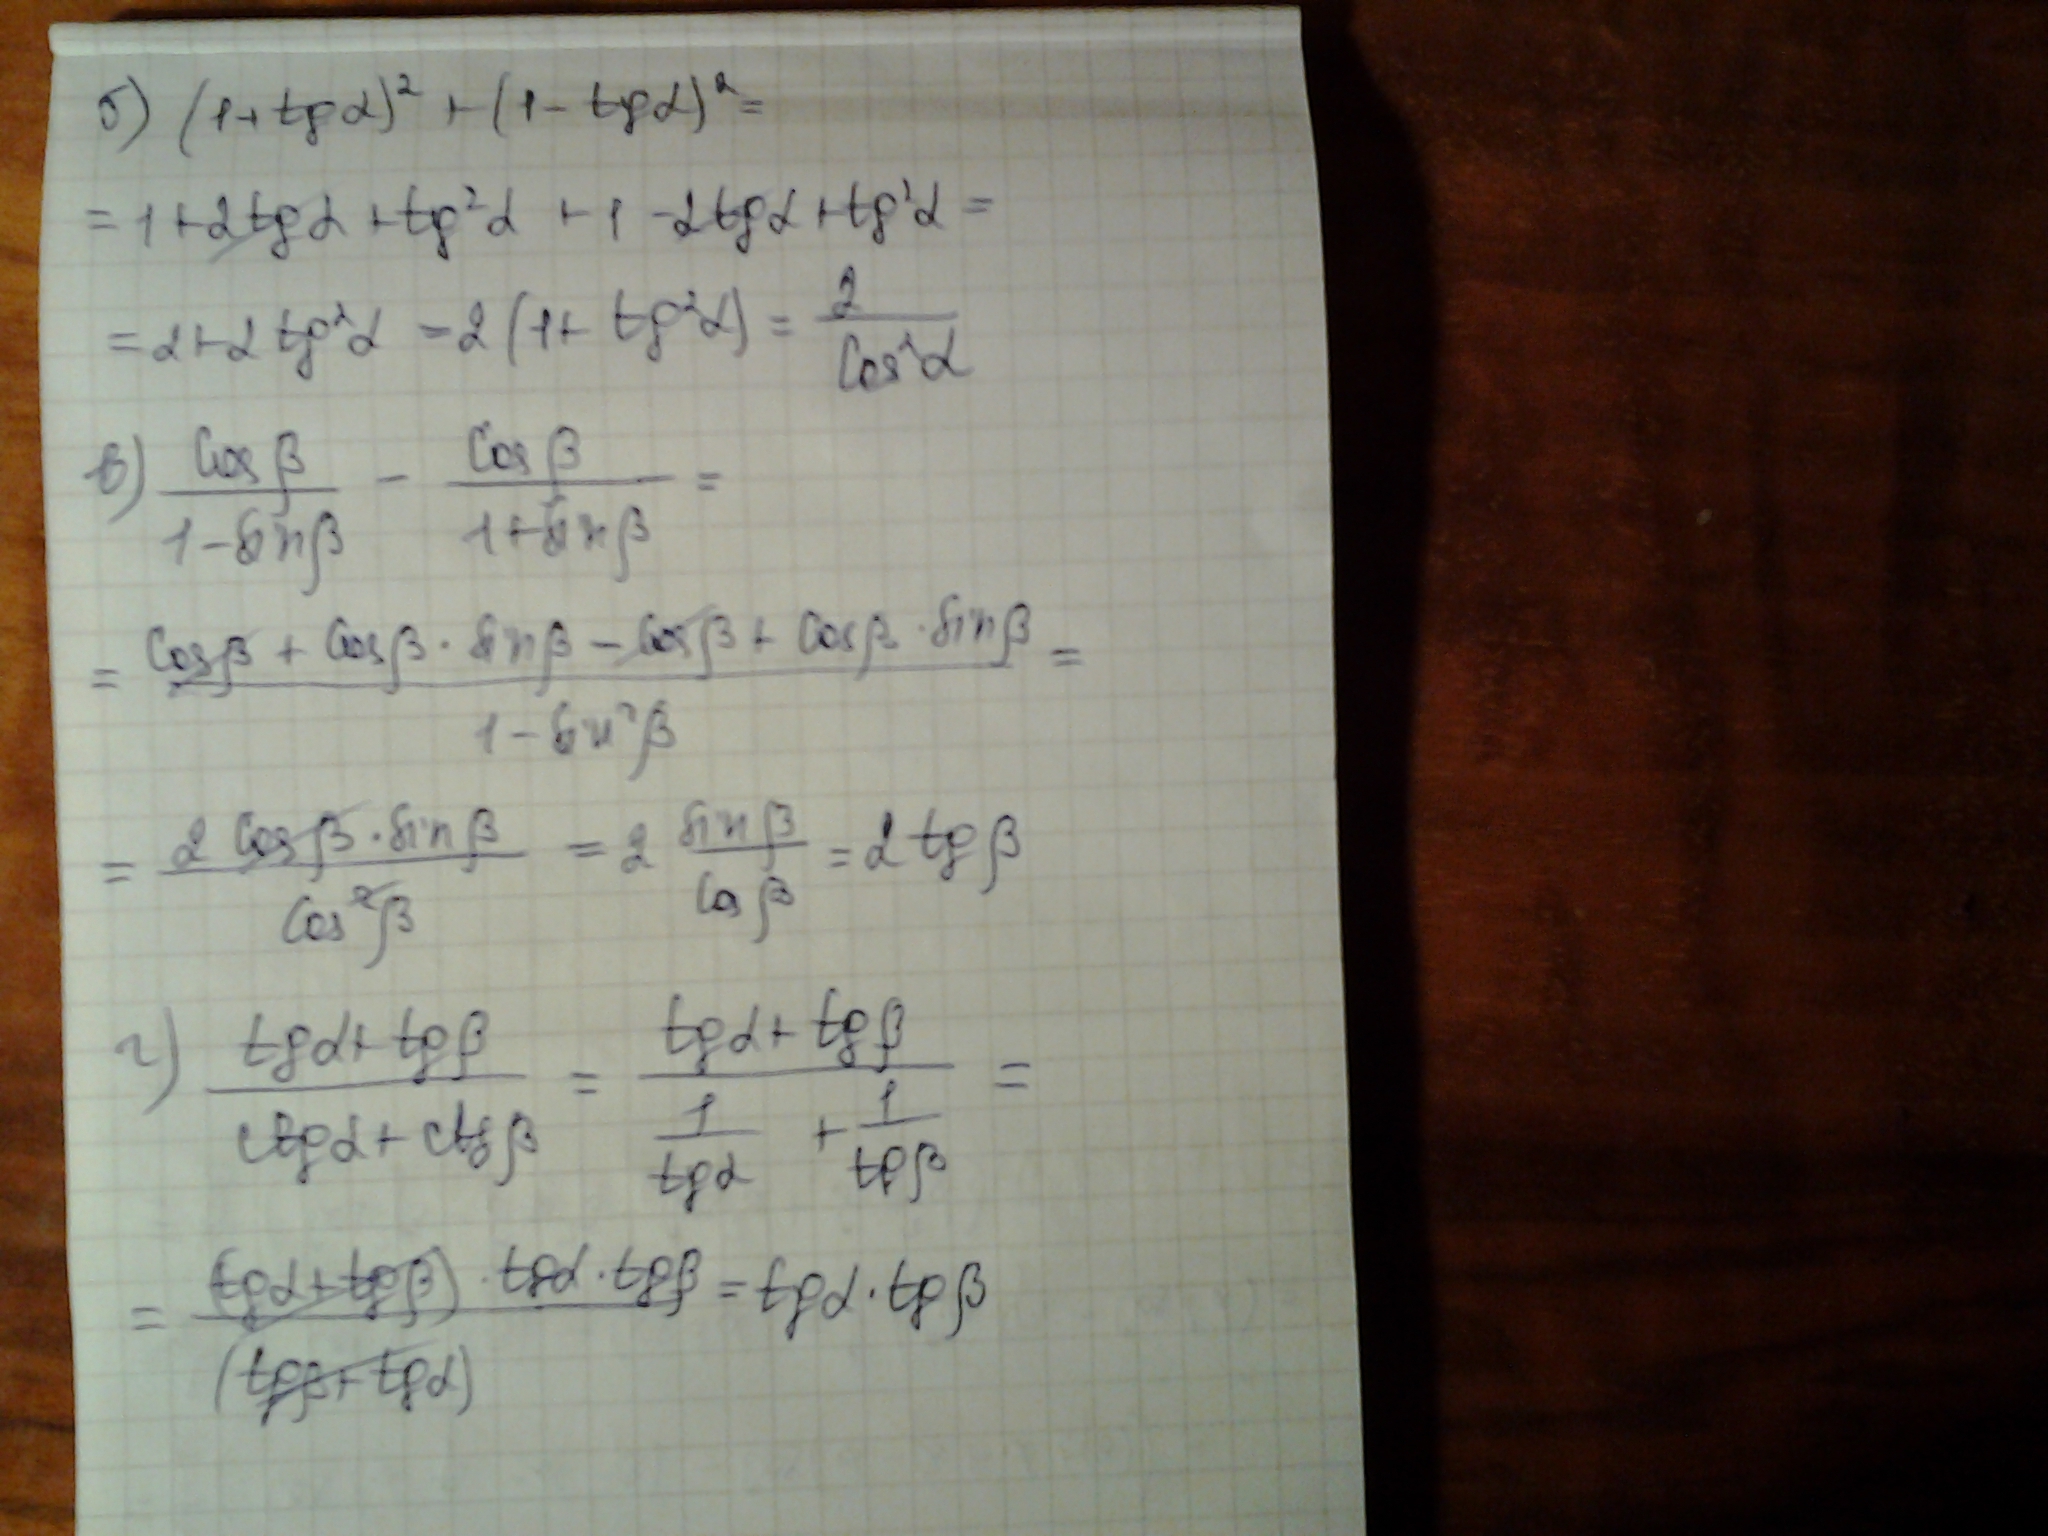 б) (1+tgα)² + (1- tgα)² =
= 1+2tgα +tg²α + 1 -2tgα +tg²α =
= 2+2 tg²α = 2 (1+ tg²α) = 2/cos²α
в) cosβ/(1-sinβ) - cosβ/(1+sinβ) =
= (cosβ + cosβ · sinβ - cosβ + cosβ · sinβ)/(1-sin²β) =
= (2 cosβ · sinβ)/cos²β = 2 sinβ/cosβ = 2 tgβ
г) (tgα+ tgβ)/(ctgα+ ctgβ) = (tgα+ tgβ)/(1/tgα + 1/tgβ) =
= ((tgα+tgβ) · tgα · tgβ)/(tgβ+tgα) = tgα · tgβ